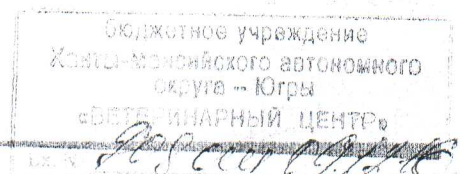 бюджетное учреждение
Ханты-Мансийского автономного
округа -- Югры
«ВЕТЕРИНАРНЫЙ ЦЕНТР»
вх. №